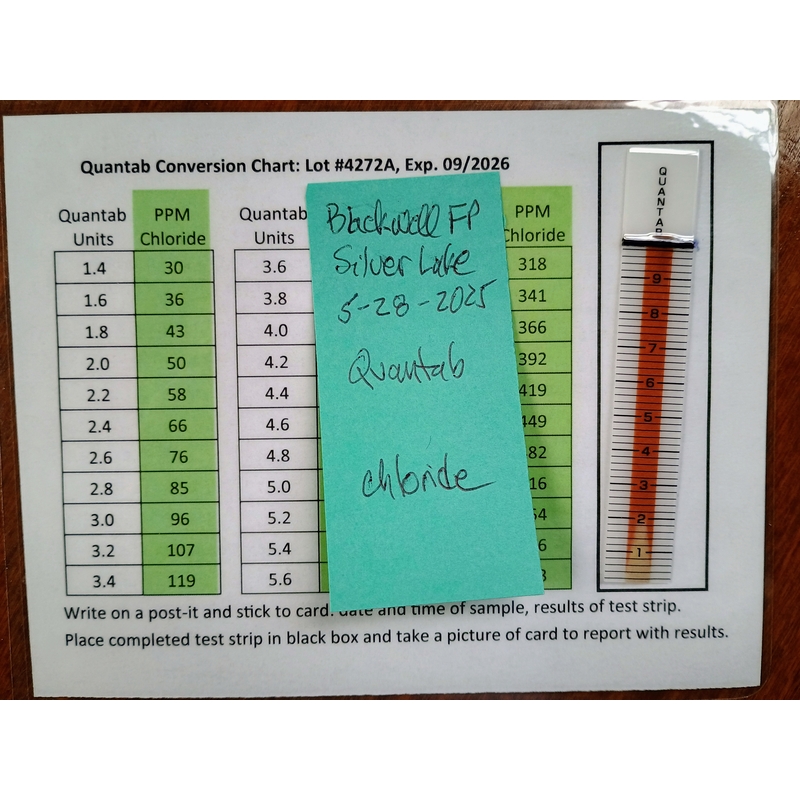 Quantab Conversion Chart: Lot #4272A, Exp. 09/2026
Quantab Units PPM Chloride
1.4 30
1.6 36
1.8 43
2.0 50
2.2 58
2.4 66
2.6 76
2.8 85
3.0 96
3.2 107
3.4 119
Quantab Units
3.6
3.8
4.0
4.2
4.4
4.6
4.8
5.0
5.2
5.4
5.6
Blackwell FP
Silver Lake
5-28-2025
Quantab
chloride
PPM Chloride
318
341
366
392
419
449
QUANTAB
9
8
7
6
5
4
3
2
1
Write on a post-it and stick to card: date and time of sample, results of test strip.
Place completed test strip in black box and take a picture of card to report with results.